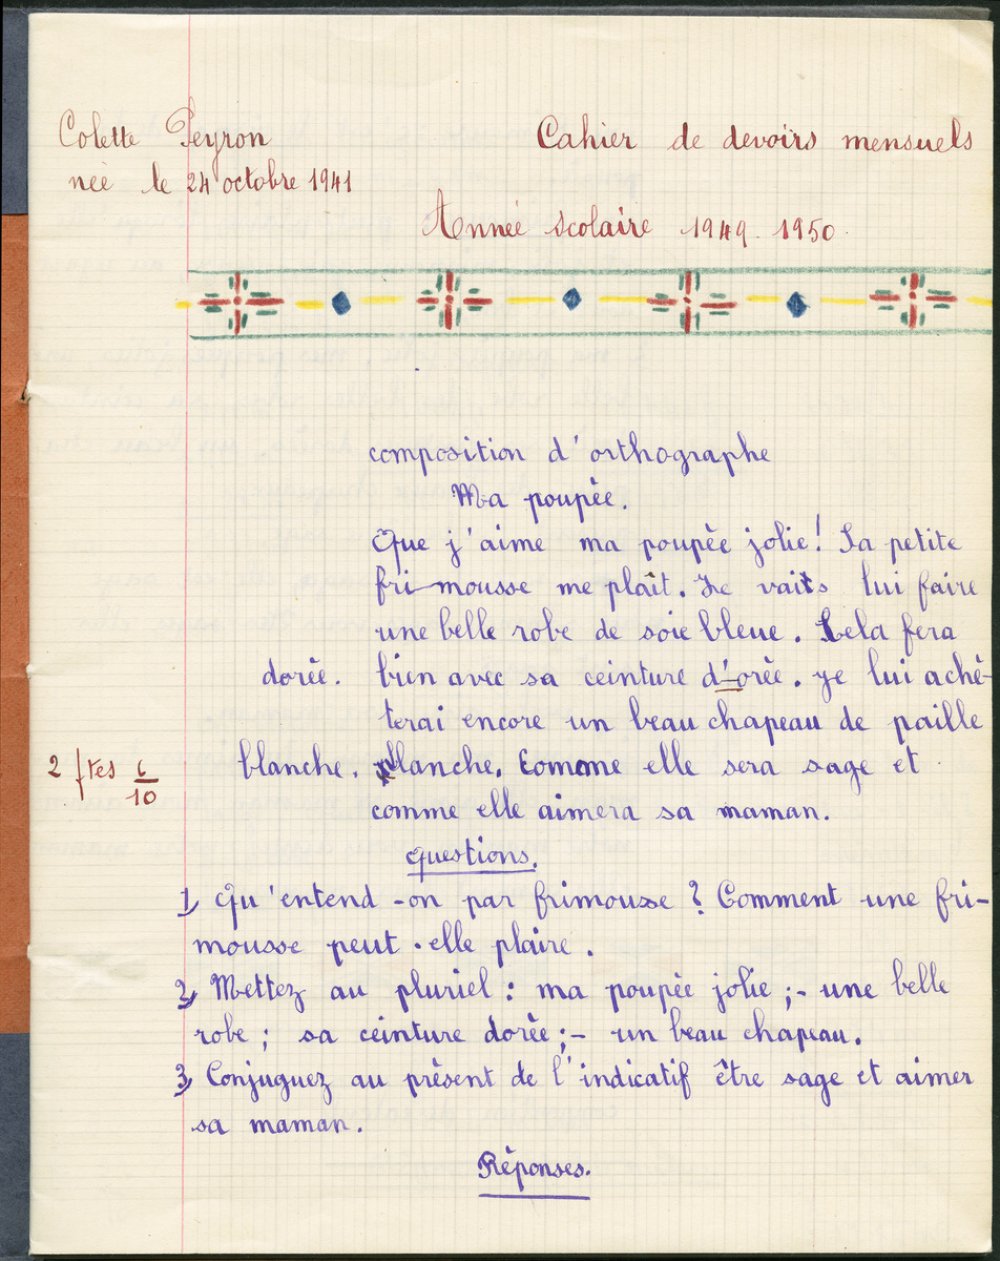 Colette Peyron
née le 24 octobre 1941
Cahier de devoirs mensuels
Année scolaire 1949-1950
composition d'orthographe
Ma poupée.
Que j'aime ma poupée jolie! Sa petite
frimousse me plaît. Je vais lui faire
une belle robe de soie bleue. Cela fera
dorée. bien avec sa ceinture d'orée. Je lui achè-
terai encore un beau chapeau de paille
2 ftes 6/10 blanche. blanche. Comme elle sera sage et
comme elle aimera sa maman.
Questions.
1) Qu'entend-on par frimousse? Comment une fri-
mousse peut-elle plaire.
2) Mettez au pluriel: ma poupée jolie;- une belle
robe; sa ceinture dorée;- un beau chapeau.
3) Conjuguez au présent de l'indicatif être sage et aimer
sa maman.
Réponses.